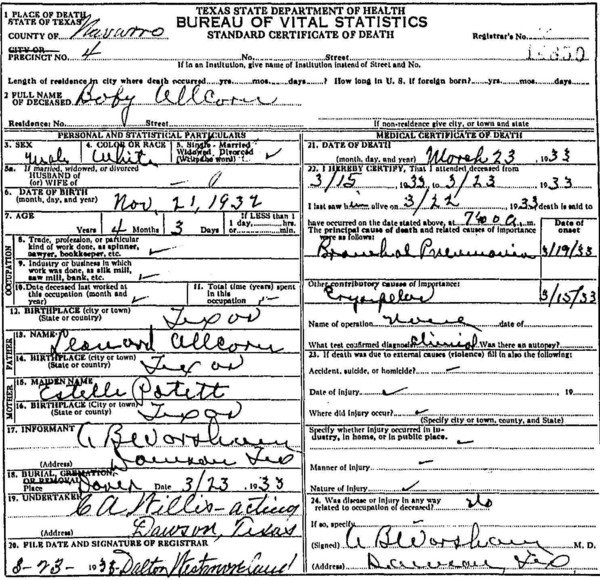 TEXAS STATE DEPARTMENT OF HEALTH
BUREAU OF VITAL STATISTICS
STANDARD CERTIFICATE OF DEATH
1 PLACE OF DEATH
STATE OF TEXAS
COUNTY OF Navarro
Registrar's No.
CITY OR
PRECINCT NO. 4 No. Street
If in an Institution, give name of Institution instead of Street and No.
Length of residence in city where death occurred yrs. mos. days? How long in U. S. if foreign born? yrs. mos. days
2 FULL NAME
OF DECEASED Boby Allcorn
Residence: No. Street
If non-residence give city, or town and state
PERSONAL AND STATISTICAL PARTICULARS
3. SEX 4. COLOR OR RACE 5. Single Married
Widowed Divorced
(Write the word)
Male White
5a. If married, widowed, or divorced
HUSBAND OF
(or) WIFE of
6. DATE OF BIRTH
(month, day, and year) Nov 21, 1932
7. AGE If LESS than 1
Years 4 Months 3 Days 1 day, hrs.
or min.
OCCUPATION
8. Trade, profession, or particular
kind of work done, as spinner,
sawyer, bookkeeper, etc.
9. Industry or business in which
work was done, as silk mill,
saw mill, bank, etc.
10. Date deceased last worked at
this occupation (month and
year)
11. Total time (years) spent
in this
occupation
12. BIRTHPLACE (city or town)
(State or country) Texas
FATHER
13. NAME Leonard Allcorn
14. BIRTHPLACE (city or town)
(State or country) Texas
MOTHER
15. MAIDEN NAME
Estelle Patett
16. BIRTHPLACE (City or town)
(State or country) Texas
17. INFORMANT A B Worsham
(Address) Dawson Tex
18. BURIAL, CREMATION,
OR REMOVAL
Place Dover Date 3/23 1933
19. UNDERTAKER C A Willis - acting
(Address) Dawson, Texas
20. FILE DATE AND SIGNATURE OF REGISTRAR
3-23- 1933 Dalton Westmoreland
MEDICAL CERTIFICATE OF DEATH
21. DATE OF DEATH
(month, day, and year) March 23 , 1933
22. I HEREBY CERTIFY, That I attended deceased from
3/15 1933 to 3/23 1933
I last saw him alive on 3/22 1933 death is said to
have occurred on the date stated above, at 7:00 a m.
The principal cause of death and related causes of importance
were as follows:
Date of
onset
Bronchial Pneumonia 3/19/33
Other contributory causes of importance:
Erysipelas 3/15/33
Name of operation None date of
What test confirmed diagnosis? clinical Was there an autopsy?
23. If death was due to external causes (violence) fill in also the following:
Accident, suicide, or homicide?
Date of injury 19
Where did injury occur?
(Specify city or town, county, and State)
Specify whether injury occurred in in-
dustry, in home, or in public place.
Manner of injury
Nature of injury
24. Was disease or injury in any way
related to occupation of deceased? No
If so, specify
(Signed) A B Worsham M. D.
(Address) Dawson Tex